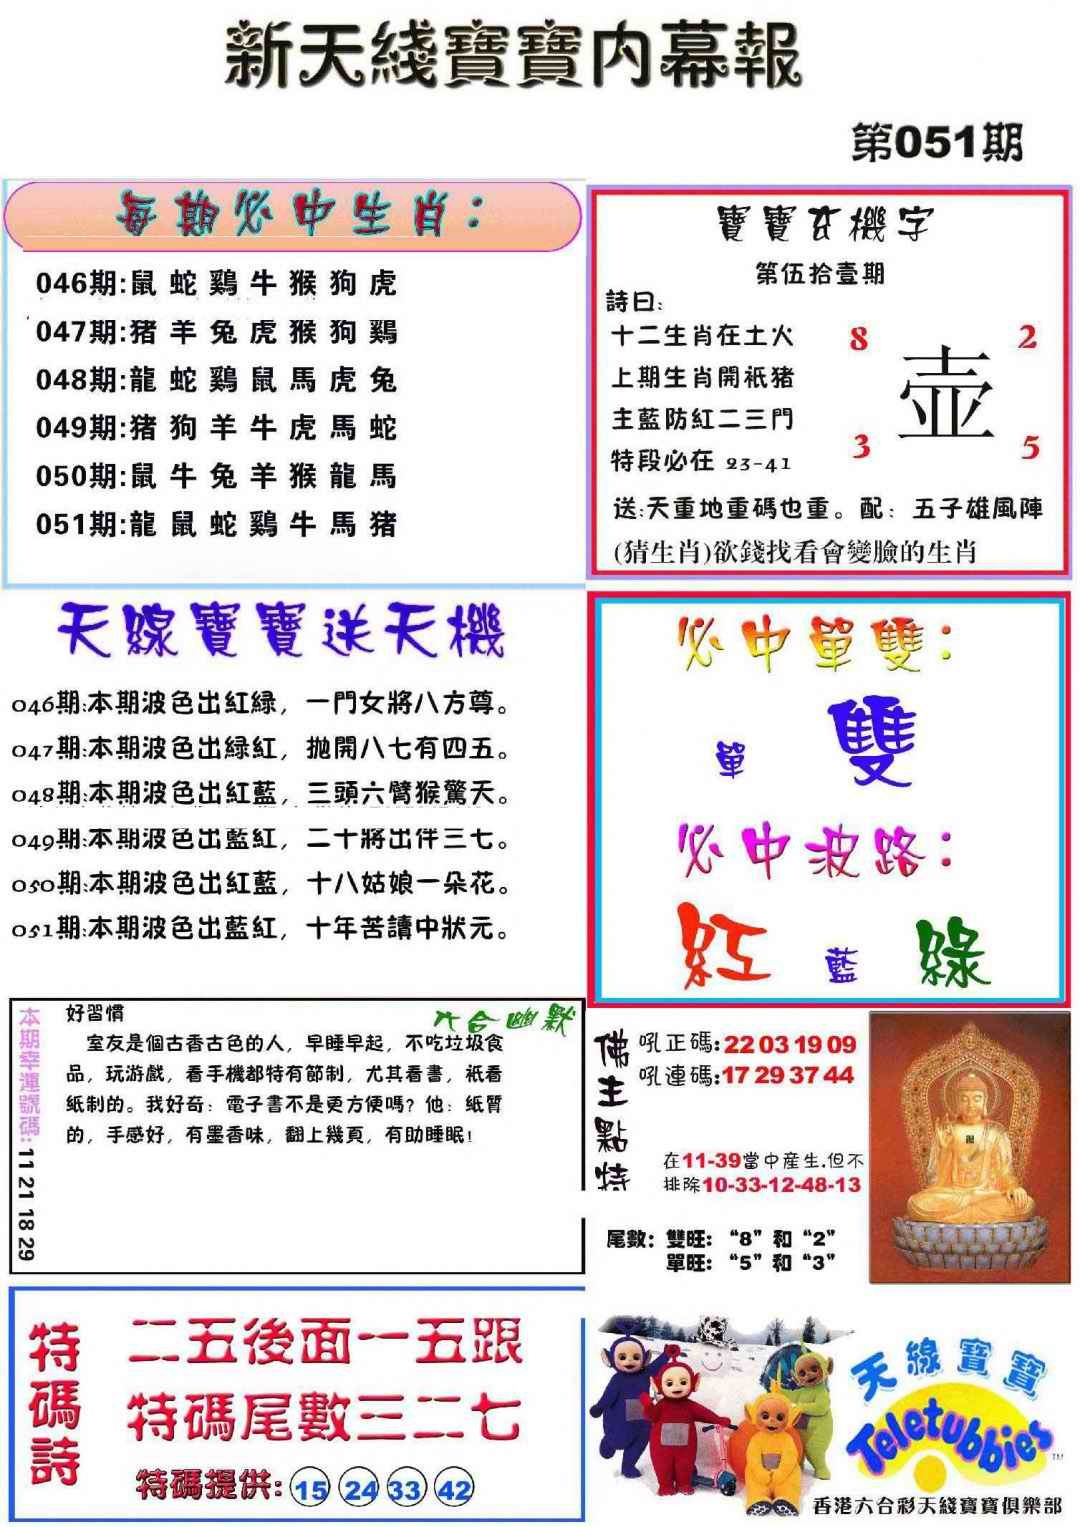 新天綫寶寶内幕報
第051期
每期必中生肖：
046期:鼠 蛇 鷄 牛 猴 狗 虎
047期:猪 羊 兔 虎 猴 狗 鷄
048期:龍 蛇 鷄 鼠 馬 虎 兔
049期:猪 狗 羊 牛 虎 馬 蛇
050期:鼠 牛 兔 羊 猴 龍 馬
051期:龍 鼠 蛇 鷄 牛 馬 猪
寶寶玄機字
第伍拾壹期
詩曰:
十二生肖在土火
上期生肖開祇猪
主藍防紅二三門
特段必在 23-41
8 2
壺
3 5
送:天重地重碼也重。配：五子雄風陣
(猜生肖)欲錢找看會變臉的生肖
天線寶寶送天機
046期:本期波色出紅緑，一門女將八方尊。
047期:本期波色出緑紅，抛開八七有四五。
048期:本期波色出紅藍，三頭六臂猴驚天。
049期:本期波色出藍紅，二十將出伴三七。
050期:本期波色出紅藍，十八姑娘一朵花。
051期:本期波色出藍紅，十年苦讀中狀元。
必中單雙：
單 雙
必中波路：
紅 藍 綠
本期幸運號碼:11 21 18 29
六合幽默
好習慣
室友是個古香古色的人，早睡早起，不吃垃圾食
品，玩游戲，看手機都特有節制，尤其看書，祇看
紙制的。我好奇：電子書不是更方便嗎？他：紙質
的，手感好，有墨香味，翻上幾頁，有助睡眠！
佛主點特
吼正碼:22 03 19 09
吼連碼:17 29 37 44
在11-39當中産生.但不
排除10-33-12-48-13
尾數：雙旺：“8”和“2”
單旺：“5”和“3”
特碼詩
二五後面一五跟
特碼尾數三二七
特碼提供: 15 24 33 42
天線寶寶
Teletubbies
TM
香港六合彩天綫寶寶俱樂部